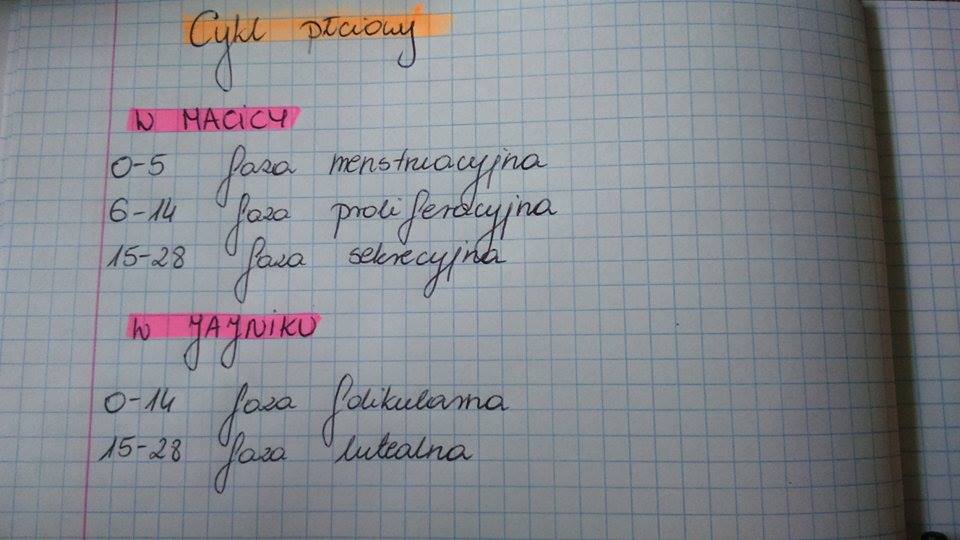 Cykl płciowy
W MACICY
0-5 faza menstruacyjna
6-14 faza proliferacyjna
15-28 faza sekrecyjna
W JAJNIKU
0-14 faza folikularna
15-28 faza lutealna